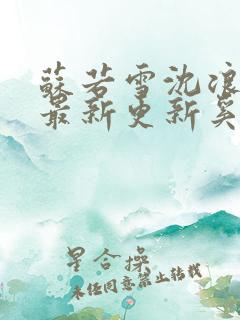 蘇若雪沈浪
最新更新奚
星合操
未经同意禁止转载